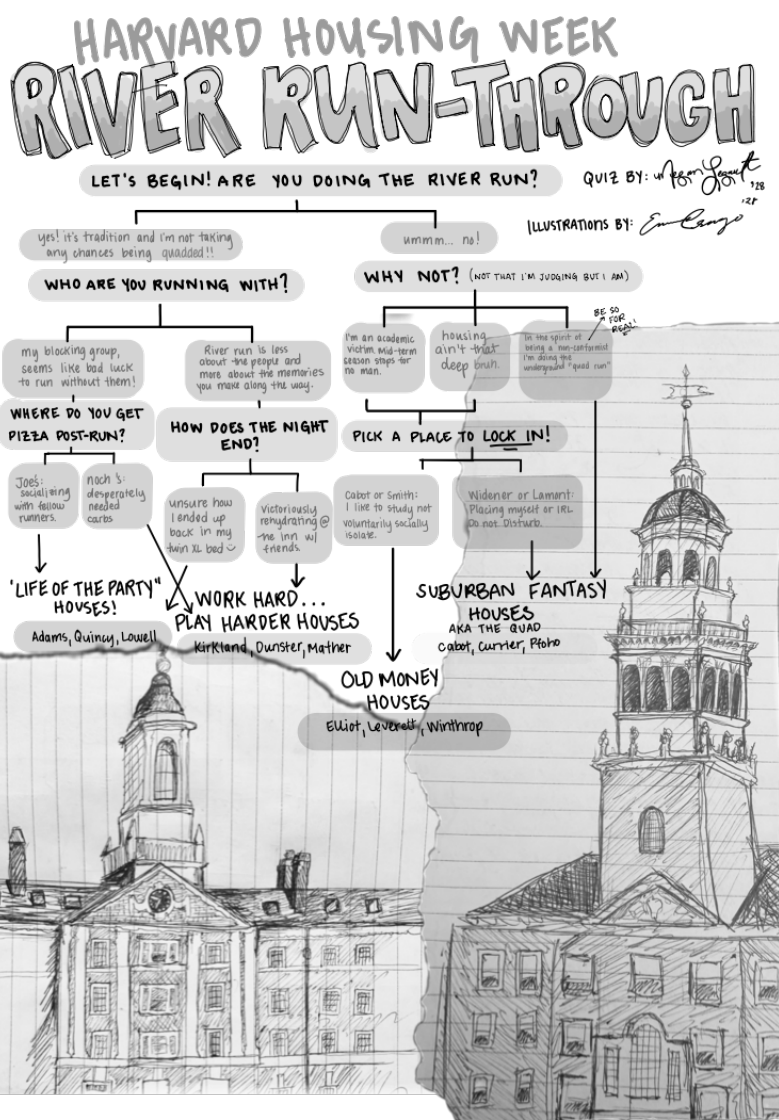 HARVARD HOUSING WEEK
RIVER RUN-THROUGH
LET'S BEGIN! ARE YOU DOING THE RIVER RUN?
QUIZ BY:
'28
ILLUSTRATIONS BY:
'28
yes! it's tradition and i'm not taking
any chances being quadded!!
ummm... no!
WHO ARE YOU RUNNING WITH?
WHY NOT? (NOT THAT I'M JUDGING BUT I AM)
BE SO
FOR
REAL!
my blocking group,
seems like bad luck
to run without them!
River run is less
about the people and
more about the memories
you make along the way.
I'm an academic
victim, mid-term
season stops for
no man.
housing
ain't that
deep bruh.
In the spirit of
being a non-conformist
I'm doing the
underground "quad run"
WHERE DO YOU GET
PIZZA POST-RUN?
HOW DOES THE NIGHT
END?
PICK A PLACE TO LOCK IN!
Joe's:
socializing
with fellow
runners.
noch's:
desperately
needed
carbs
unsure how
I ended up
back in my
twin XL bed
Victoriously
rehydrating @
the inn w/
friends.
Cabot or Smith:
I like to study not
voluntarily socially
isolate.
Widener or Lamont:
Placing myself or IRL
Do not Disturb.
"LIFE OF THE PARTY"
HOUSES!
Adams, Quincy, Lowell
WORK HARD...
PLAY HARDER HOUSES
Kirkland, Dunster, Mather
SUBURBAN FANTASY
HOUSES
AKA THE QUAD
Cabot, Currier, Pfoho
OLD MONEY
HOUSES
Elliot, Leverett, Winthrop